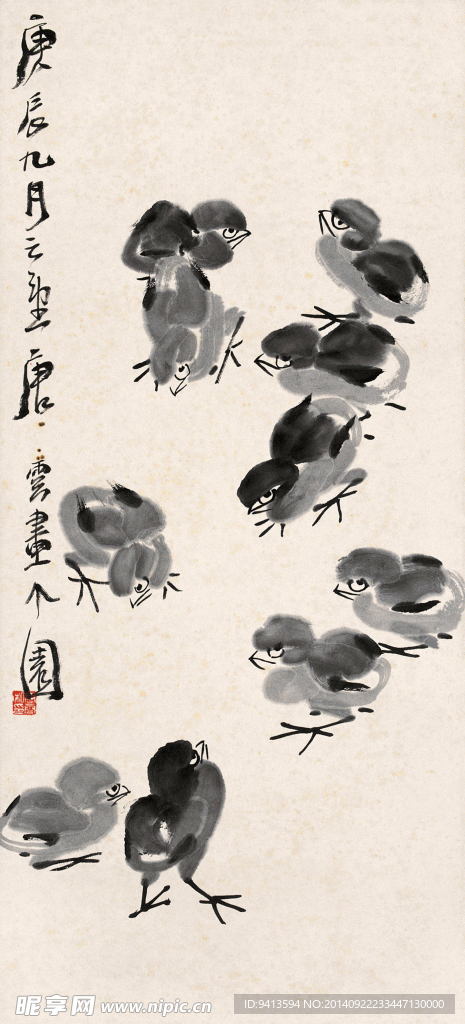 庚辰九月之望唐雲畫个園
昵享网 www.nipic.cn
ID:9413594 NO:20140922233447130000